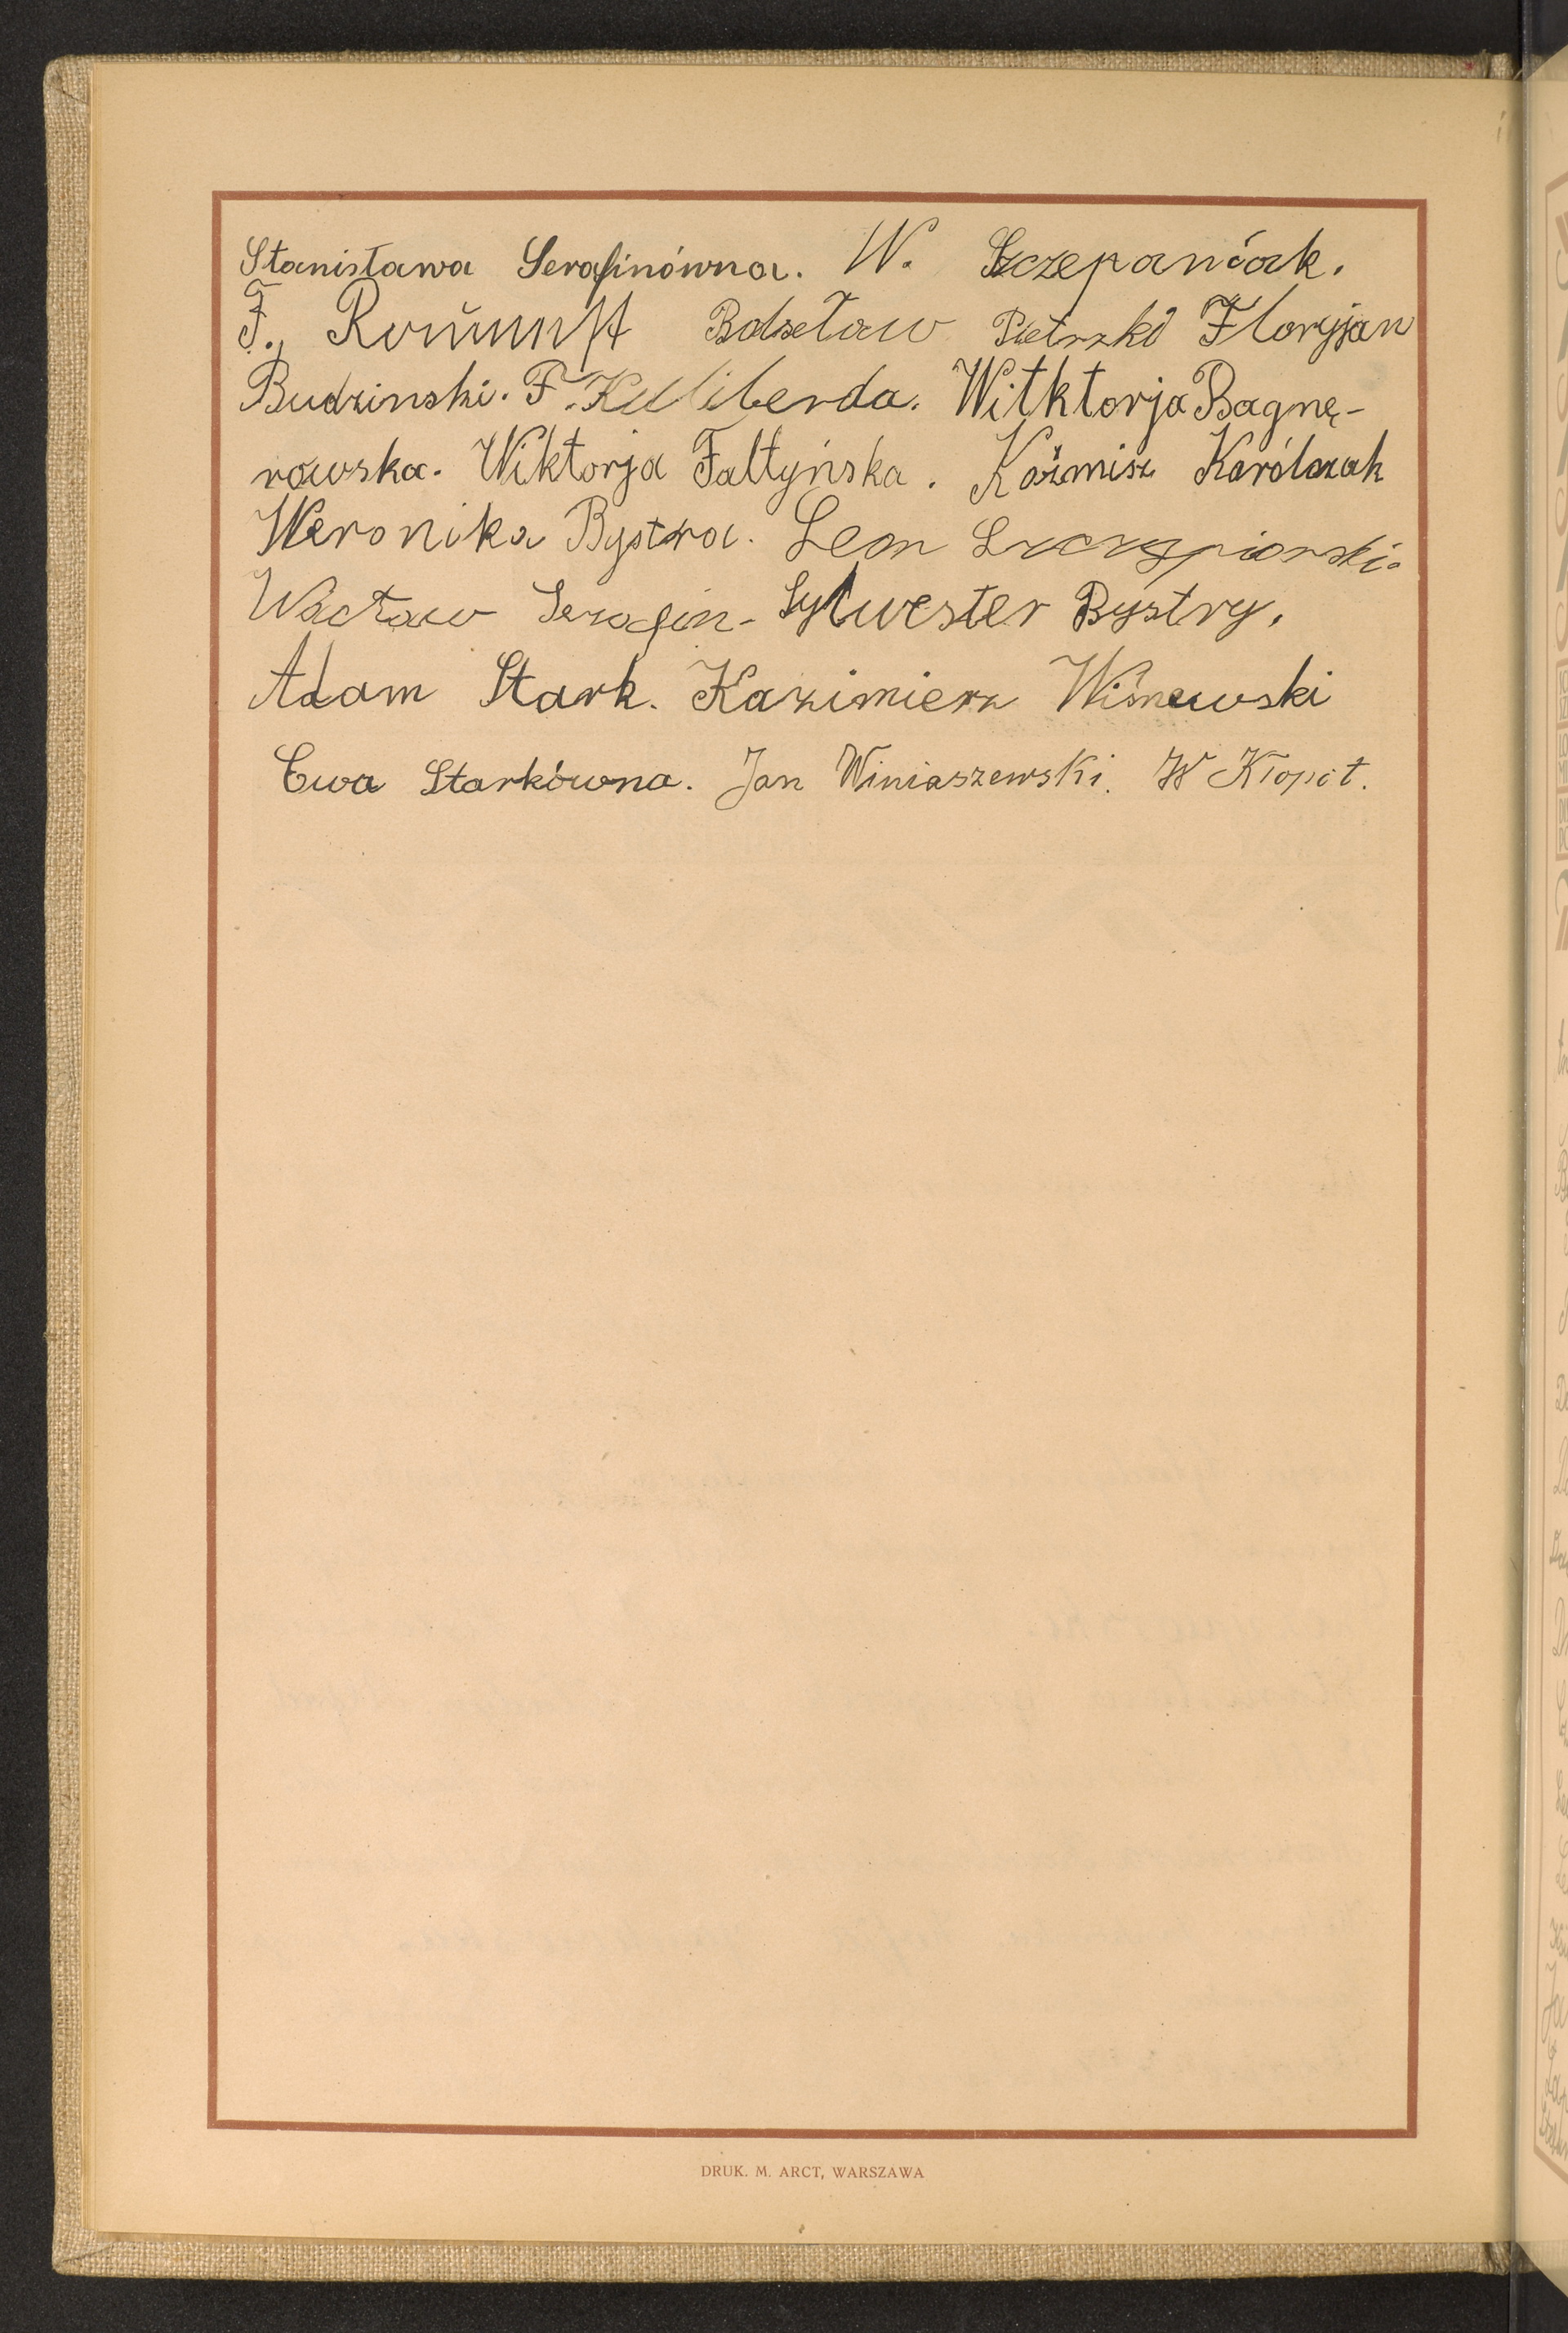 Stanisława Serafinówna. W. Szczepaniak.
F. Bolesław Pietrzko Floryjan
Budzinski. F. Kuliberda. Witktorja Bagnę-
rowska. Wiktorja Fałtyńska. Kaźmisz Karólczak
Weronika Bystra. Leon Szczypiorski.
Wacław Serafin- Sylwester Bystry.
Adam Stark. Kazimierz Wiśnewski
Ewa Starkówna. Jan Winiaszewski. W Kłopot.
DRUK. M. ARCT, WARSZAWA